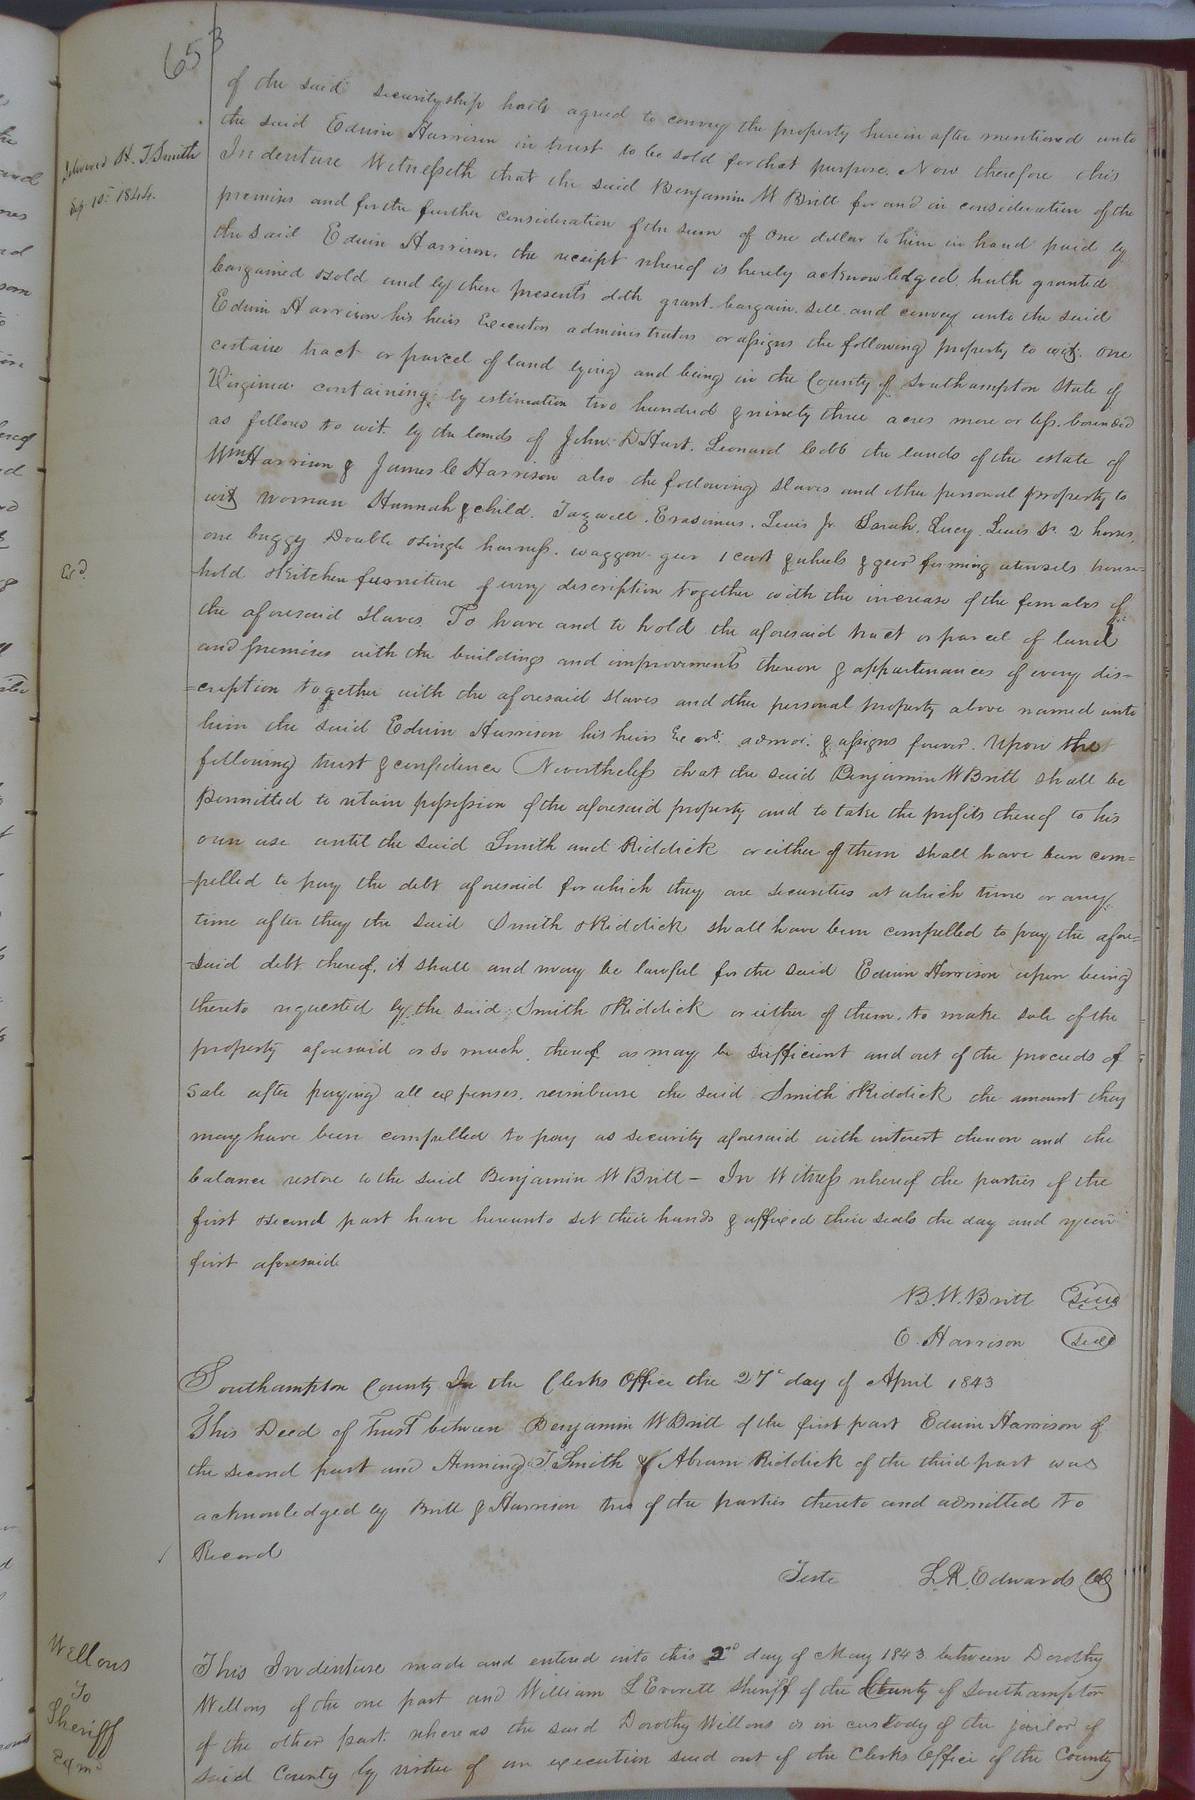 653
of the said securityship hath agreed to convey the property herein after mentioned unto
the said Edwin Harrison in trust to be sold for that purpose. Now therefore this
Indenture Witnesseth that the said Benjamin W Britt for and in consideration of the
premises and for the further consideration of the sum of One dollar to him in hand paid by
the said Edwin Harrison, the receipt whereof is hereby acknowledged, hath granted
bargained & sold and by these presents doth grant, bargain, sell, and convey unto the said
Edwin Harrison his heirs Executors administrators or assigns the following property to wit. One
certain tract or parcel of land lying and being in the County of Southampton State of
Virginia containing by estimation two hundred & ninety three acres more or less, bounded
as follows to wit. by the lands of John D Hart. Leonard Cobb the lands of the estate of
Wm Harrison & James C Harrison also the following slaves and other personal property to
wit woman Hannah & child. Tazwell. Erasimus. Lewis Jr. Sarah. Lucy. Lewis Sr. 2 horses,
one buggy Double & single harness. waggon geer 1 cart & wheels & geer farming utensils house-
hold & Kitchen furniture of every description together with the increase of the females of
the aforesaid slaves. To have and to hold the aforesaid tract or parcel of land
and premises with the buildings and improvements thereon & appurtenances of every dis=
=cription together with the aforesaid slaves and other personal property above named unto
him the said Edwin Harrison his heirs Exors. admor. & assigns forever. Upon the
following trust & confidence Nevertheless that the said Benjamin W Britt shall be
permitted to retain possession of the aforesaid property and to take the profits thereof to his
own use until the said Smith and Riddick or either of them shall have been com=
=pelled to pay the debt aforesaid for which they are securities at which time or any
time after they the said Smith & Riddick shall have been compelled to pay the afore=
=said debt thereof, it shall and may be lawful for the said Edwin Harrison upon being
thereto requested by the said Smith & Riddick or either of them, to make sale of the
property aforesaid or so much thereof as may be sufficient and out of the proceeds of
sale after paying all expenses, reimburse the said Smith & Riddick the amount they
may have been compelled to pay as security aforesaid with interest thereon and the
balance restore to the said Benjamin W Britt - In Witness whereof the parties of the
first & second part have hereunto set their hands & affixed their seals the day and year
first aforesaid
B. W. Britt Seal
E. Harrison Seal
Southampton County In the Clerks Office the 27th day of April 1843
This Deed of Trust between Benjamin W Britt of the first part Edwin Harrison of
the second part and Henning T Smith & Abram Riddick of the third part was
acknowledged by Britt & Harrison two of the parties thereto and admitted to
Record
Teste L. R. Edwards Clk
This Indenture made and entered into this 2nd day of May 1843 between Dorothy
Wellons of the one part and William L Everett Sheriff of the County of Southampton
of the other part. whereas the said Dorothy Wellons is in custody of the jailor of
said County by virtue of an execution sued out of the Clerks Office of the County
Delivered H. T. Smith
Sep 10th 1844.
Exd.
Wellons
To
Sheriff
Exmd